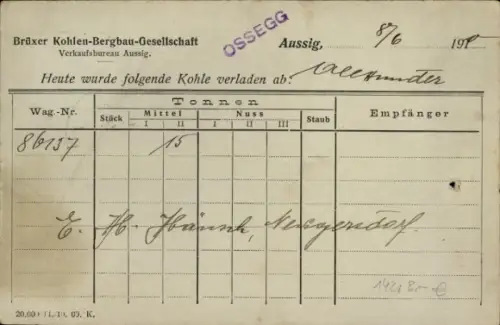 Brüxer Kohlen-Bergbau-Gesellschaft
Verkaufsbureau Aussig.
OSSEGG
Aussig, 8/6 191
Heute wurde folgende Kohle verladen ab: Alexander
Wag.-Nr.
Tonnen
Stück
Mittel
I II
Nuss
I II III
Staub
Empfänger
86137 15
E. H. Hänsch, Neugersdorf.
K.